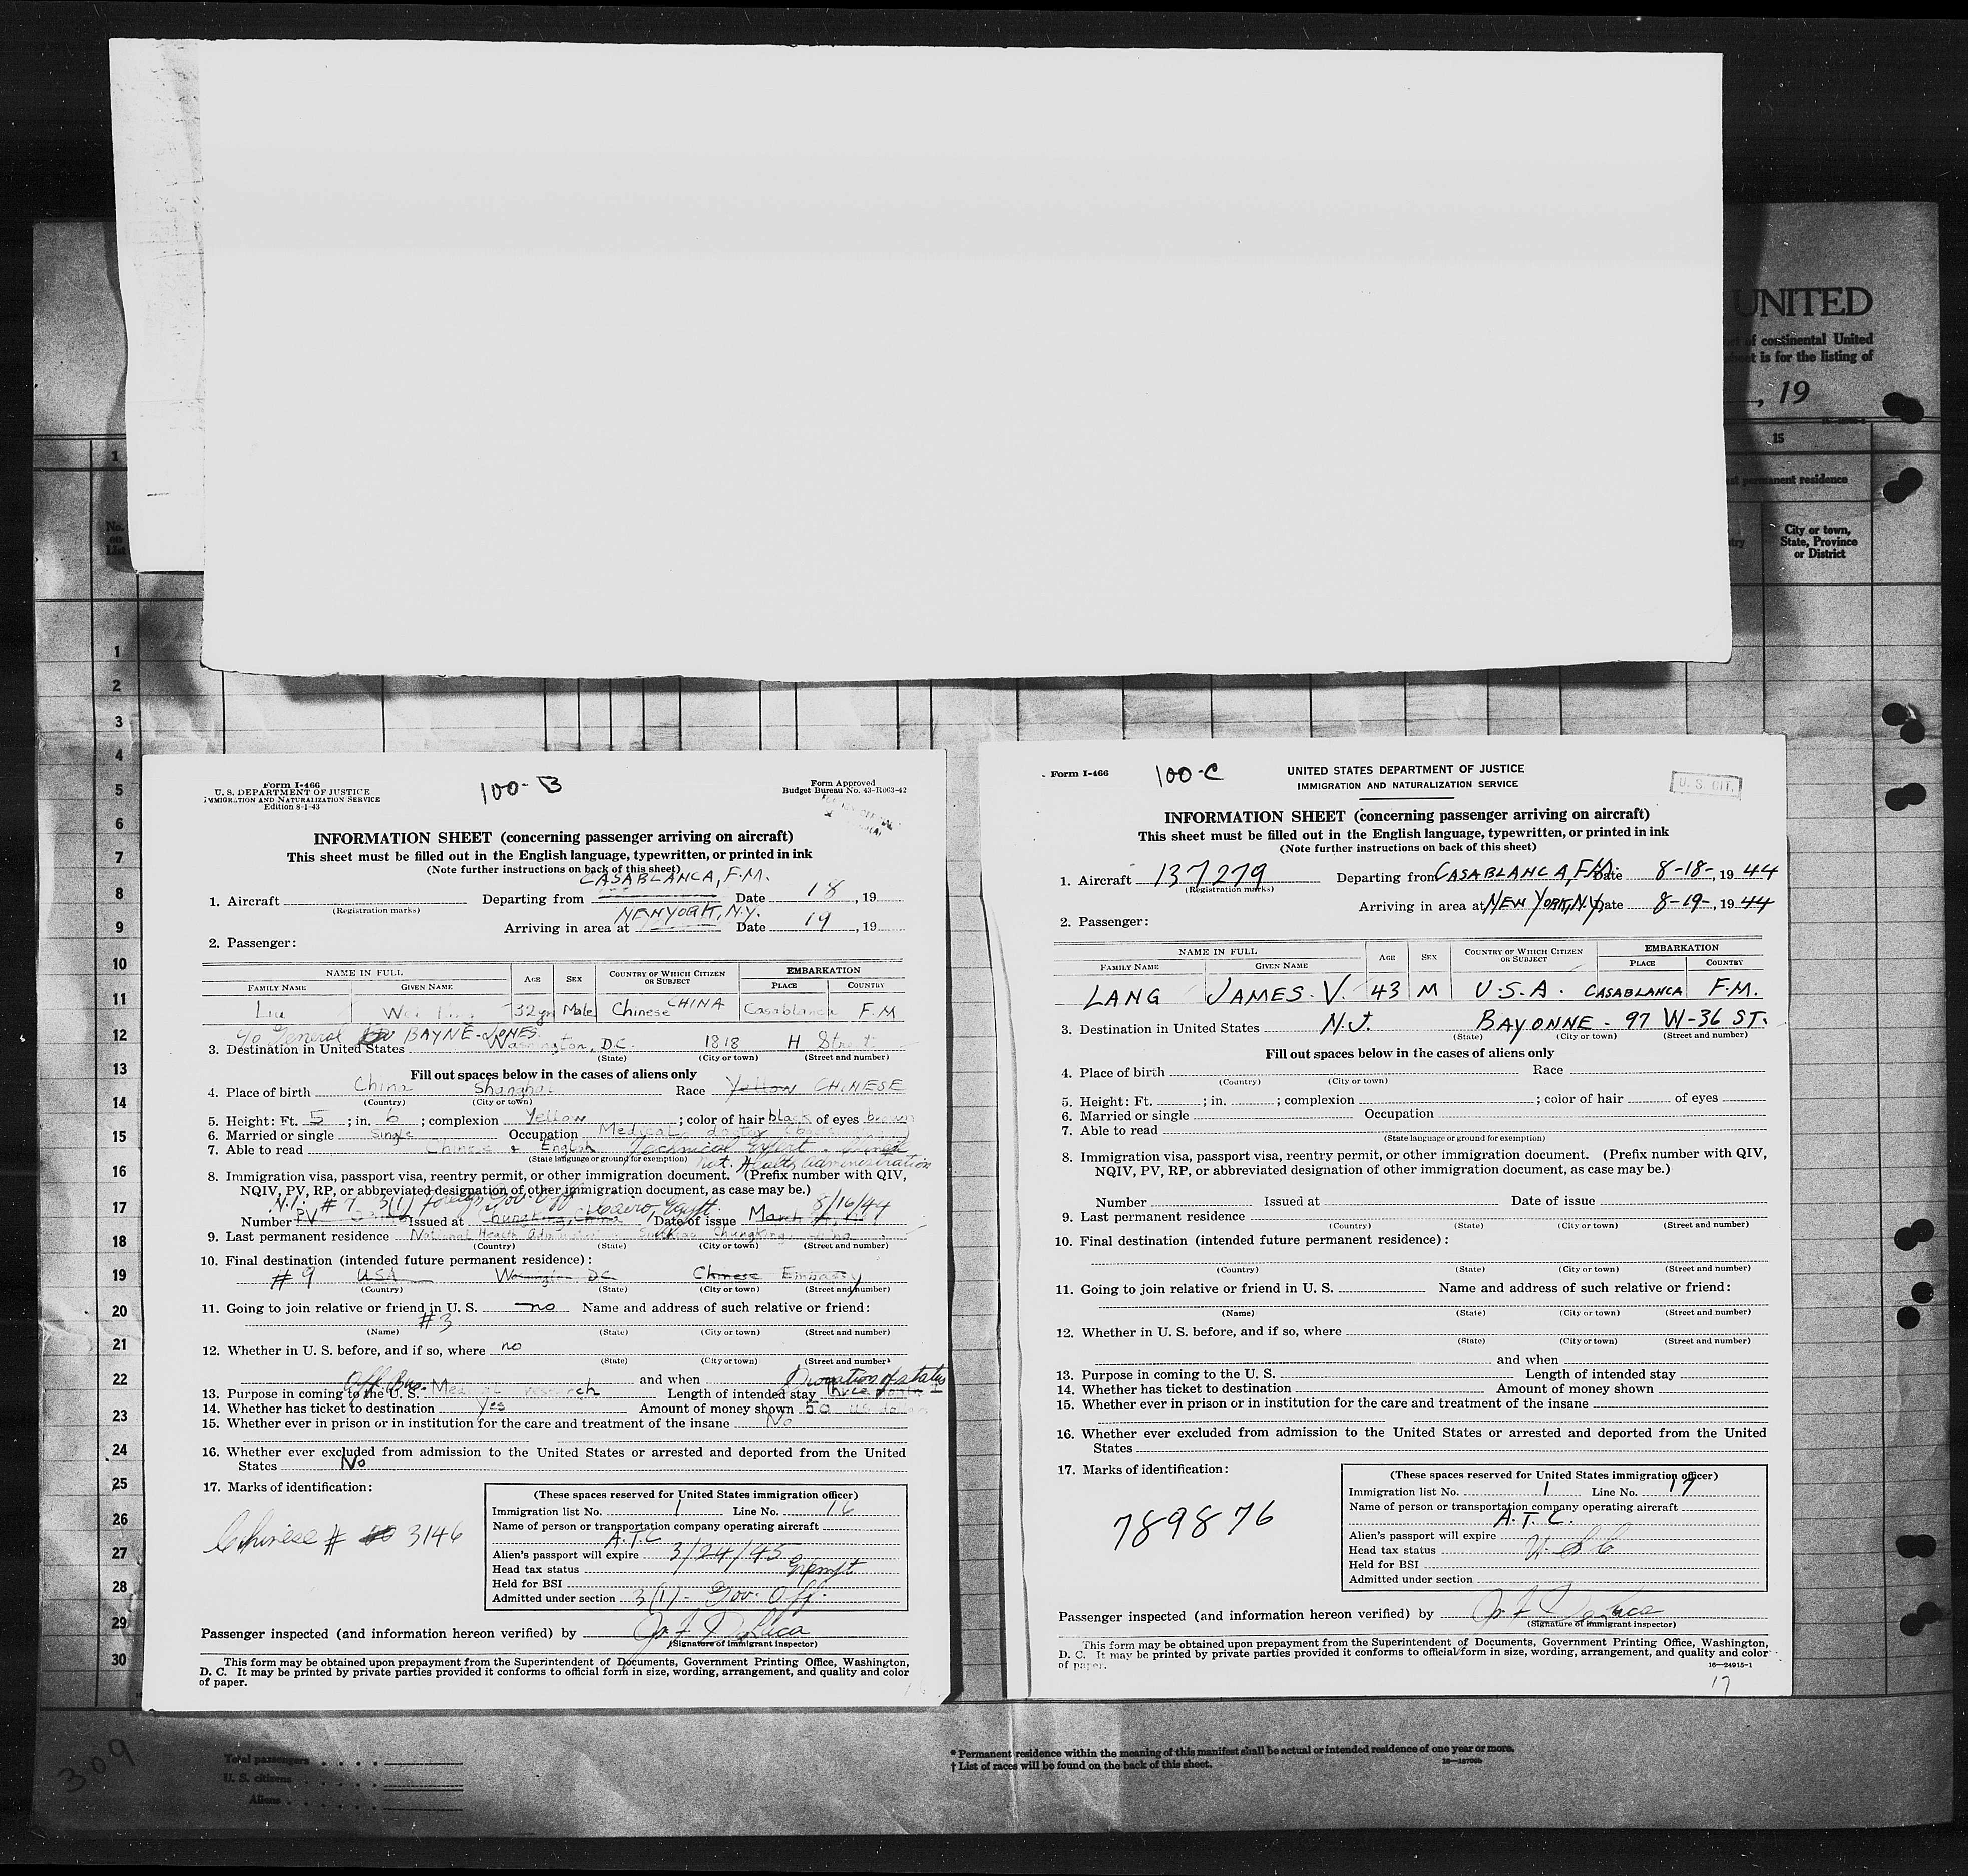 UNITED
of continental United
sheet is for the listing of
, 19
15
permanent residence
City or town,
State, Province
or District
No.
on
List
1
1
2
3
4
5
6
7
8
9
10
11
12
13
14
15
16
17
18
19
20
21
22
23
24
25
26
27
28
29
30
Form I-466
U. S. DEPARTMENT OF JUSTICE
IMMIGRATION AND NATURALIZATION SERVICE
Edition 8-1-43
100-B
Form Approved
Budget Bureau No. 43-R063-42
INFORMATION SHEET (concerning passenger arriving on aircraft)
This sheet must be filled out in the English language, typewritten, or printed in ink
(Note further instructions on back of this sheet)
CASABLANCA, F.M.
1. Aircraft Departing from Date 18, 19
(Registration marks)
NEW YORK, N.Y.
Arriving in area at Date 19, 19
2. Passenger:
NAME IN FULL AGE SEX COUNTRY OF WHICH CITIZEN OR SUBJECT EMBARKATION
FAMILY NAME GIVEN NAME PLACE COUNTRY
Liu Wei 32 yr Male Chinese CHINA Casablanca F.M
General BAYNE-JONES
3. Destination in United States Washington, D.C. 1818 H Street
(State) (City or town) (Street and number)
Fill out spaces below in the cases of aliens only
4. Place of birth China Shanghai Race Yellow CHINESE
(Country) (City or town)
5. Height: Ft. 5; in. 6; complexion Yellow; color of hair black of eyes brown
6. Married or single Single Occupation Medical doctor
7. Able to read Chinese & English Technical Expert
(State language or ground for exemption) Nat. Health Administration
8. Immigration visa, passport visa, reentry permit, or other immigration document. (Prefix number with QIV,
NQIV, PV, RP, or abbreviated designation of other immigration document, as case may be.)
# 7 3(1) Foreign Gov. Off. Cairo, Egypt. 8/16/44
Number PV Issued at Chungking, China Date of issue March
9. Last permanent residence National Health Administration Chungking, China
(Country) (State) (City or town) (Street and number)
10. Final destination (intended future permanent residence):
#9 USA Washington DC Chinese Embassy
(Country) (State) (City or town) (Street and number)
11. Going to join relative or friend in U. S. no Name and address of such relative or friend:
#3
(Name) (State) (City or town) (Street and number)
12. Whether in U. S. before, and if so, where no
(State) (City or town) (Street and number)
and when
Off. Bus. Duration of status
13. Purpose in coming to the U. S. Medical research Length of intended stay three month
14. Whether has ticket to destination Yes Amount of money shown 50 us dollar
15. Whether ever in prison or in institution for the care and treatment of the insane No
16. Whether ever excluded from admission to the United States or arrested and deported from the United
States No
17. Marks of identification:
Chinese # 3146
(These spaces reserved for United States immigration officer)
Immigration list No. 1 Line No. 16
Name of person or transportation company operating aircraft
A.T.C
Alien's passport will expire 3/24/45
Head tax status Exempt
Held for BSI
Admitted under section 3(1) - Gov. Off.
Passenger inspected (and information hereon verified) by
(Signature of immigrant inspector)
This form may be obtained upon prepayment from the Superintendent of Documents, Government Printing Office, Washington,
D. C. It may be printed by private parties provided it conforms to official form in size, wording, arrangement, and quality and color
of paper.
16
Form I-466
100-C
UNITED STATES DEPARTMENT OF JUSTICE
IMMIGRATION AND NATURALIZATION SERVICE
U. S. CIT.
INFORMATION SHEET (concerning passenger arriving on aircraft)
This sheet must be filled out in the English language, typewritten, or printed in ink
(Note further instructions on back of this sheet)
1. Aircraft 137279 Departing from CASABLANCA, F.M. Date 8-18-, 19 44
(Registration marks)
Arriving in area at NEW YORK, N.Y. Date 8-19-, 19 44
2. Passenger:
NAME IN FULL AGE SEX COUNTRY OF WHICH CITIZEN OR SUBJECT EMBARKATION
FAMILY NAME GIVEN NAME PLACE COUNTRY
LANG JAMES. V. 43 M U.S.A. CASABLANCA F.M.
3. Destination in United States N.J. BAYONNE - 97 W-36 ST.
(State) (City or town) (Street and number)
Fill out spaces below in the cases of aliens only
4. Place of birth Race
(Country) (City or town)
5. Height: Ft. ; in. ; complexion ; color of hair of eyes
6. Married or single Occupation
7. Able to read
(State language or ground for exemption)
8. Immigration visa, passport visa, reentry permit, or other immigration document. (Prefix number with QIV,
NQIV, PV, RP, or abbreviated designation of other immigration document, as case may be.)
Number Issued at Date of issue
9. Last permanent residence
(Country) (State) (City or town) (Street and number)
10. Final destination (intended future permanent residence):
(Country) (State) (City or town) (Street and number)
11. Going to join relative or friend in U. S. Name and address of such relative or friend:
(Name) (State) (City or town) (Street and number)
12. Whether in U. S. before, and if so, where
(State) (City or town) (Street and number)
and when
13. Purpose in coming to the U. S. Length of intended stay
14. Whether has ticket to destination Amount of money shown
15. Whether ever in prison or in institution for the care and treatment of the insane
16. Whether ever excluded from admission to the United States or arrested and deported from the United
States
17. Marks of identification:
789876
(These spaces reserved for United States immigration officer)
Immigration list No. 1 Line No. 17
Name of person or transportation company operating aircraft
A.T.C.
Alien's passport will expire
Head tax status U.S.C
Held for BSI
Admitted under section
Passenger inspected (and information hereon verified) by
(Signature of immigrant inspector)
This form may be obtained upon prepayment from the Superintendent of Documents, Government Printing Office, Washington,
D. C. It may be printed by private parties provided it conforms to official form in size, wording, arrangement, and quality and color
of paper. 16—24915-1
17
309
Total passengers
U. S. citizens
Aliens
* Permanent residence within the meaning of this manifest shall be actual or intended residence of one year or more.
† List of races will be found on the back of this sheet.